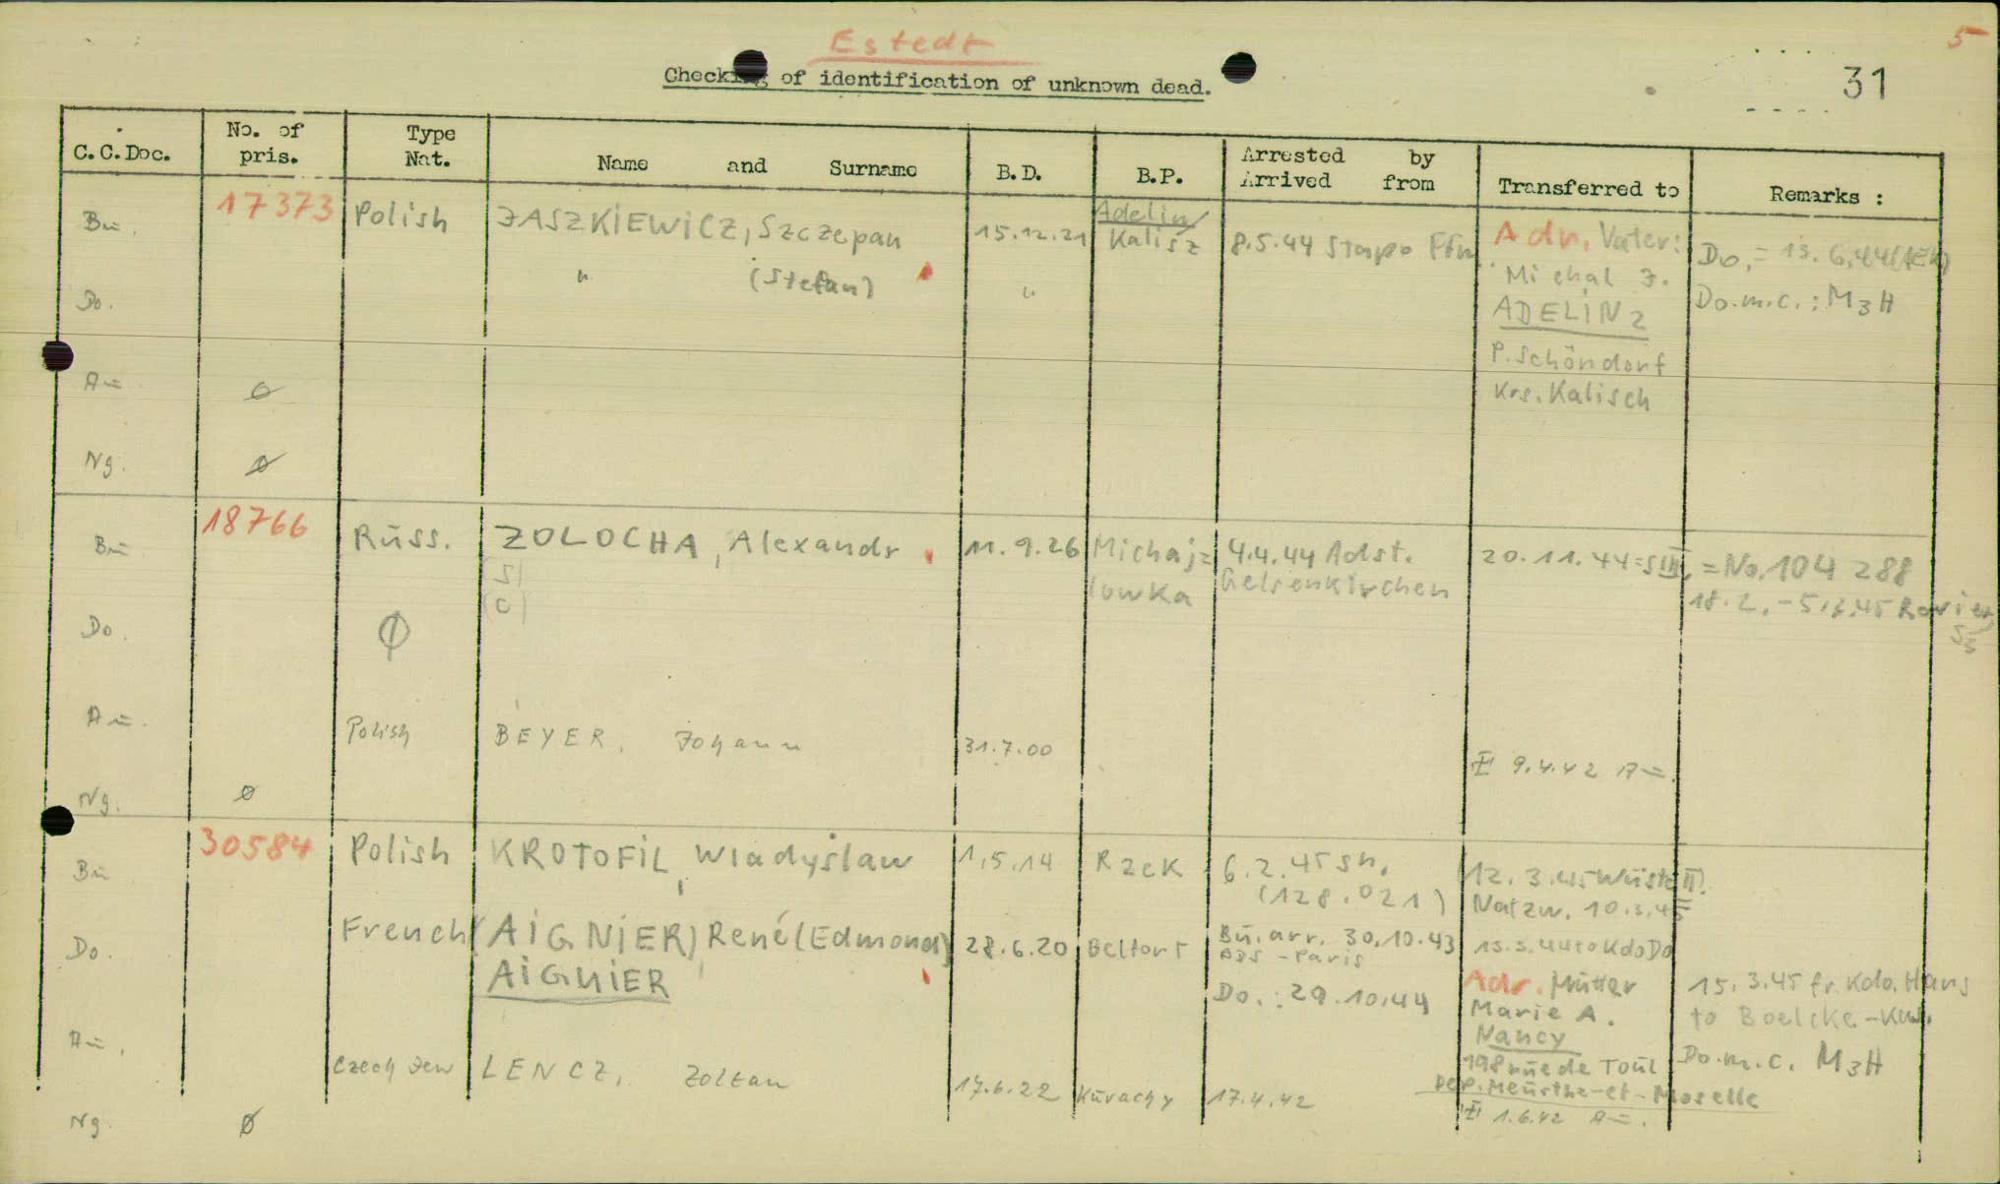 Estedt
5
Checking of identification of unknown dead.
31
C.C.Doc.
No. of pris.
Type Nat.
Name and Surname
B.D.
B.P.
Arrested by
Arrived from
Transferred to
Remarks :
Bu. 17373 Polish JASZKIEWICZ, Szczepan 15.12.21 Adelin/ Kalisz 8.5.44 Stapo Ffm Adr. Vater: Do. = 13.6.44
Do. " (Stefan) " Michal J. Do.m.c.: M3H
ADELINZ
P. Schöndorf
Au ø Krs. Kalisch
Ng. ø
Bu 18766 Russ. ZOLOCHA, Alexandr 11.9.26 Michaj= 4.4.44 Adst. 20.11.44=SIII. =No. 104 288
(S) lowka Gelsenkirchen 18.2.-5.3.45
(C)
Do. ø
Au. Polish BEYER, Johann 31.7.00 9.4.42 Au.
Ng. ø
Bu 30584 Polish KROTOFIL, Wladyslaw 1.5.14 Rzek 6.2.45 Sn. 12.3.45 Wüste II.
(128.021) Natzw. 10.3.45
Do. French (AIGNIER) René (Edmond) 28.6.20 Belfort Bu. arr. 30.10.43 13.3.44 to Kdo Do
AIGUIER - Paris
Do.: 29.10.44 Adr. Mutter 15.3.45 fr. Kdo. Hans
Marie A. to Boelcke-Kas.
Nancy
Au. Czech Jew LENCZ, Zoltan 17.6.22 Kuvachy 17.4.42 198 rue de Toul Do.m.c. M3H
Dep. Meurthe-et-Moselle
1.6.42 Au.
Ng. ø